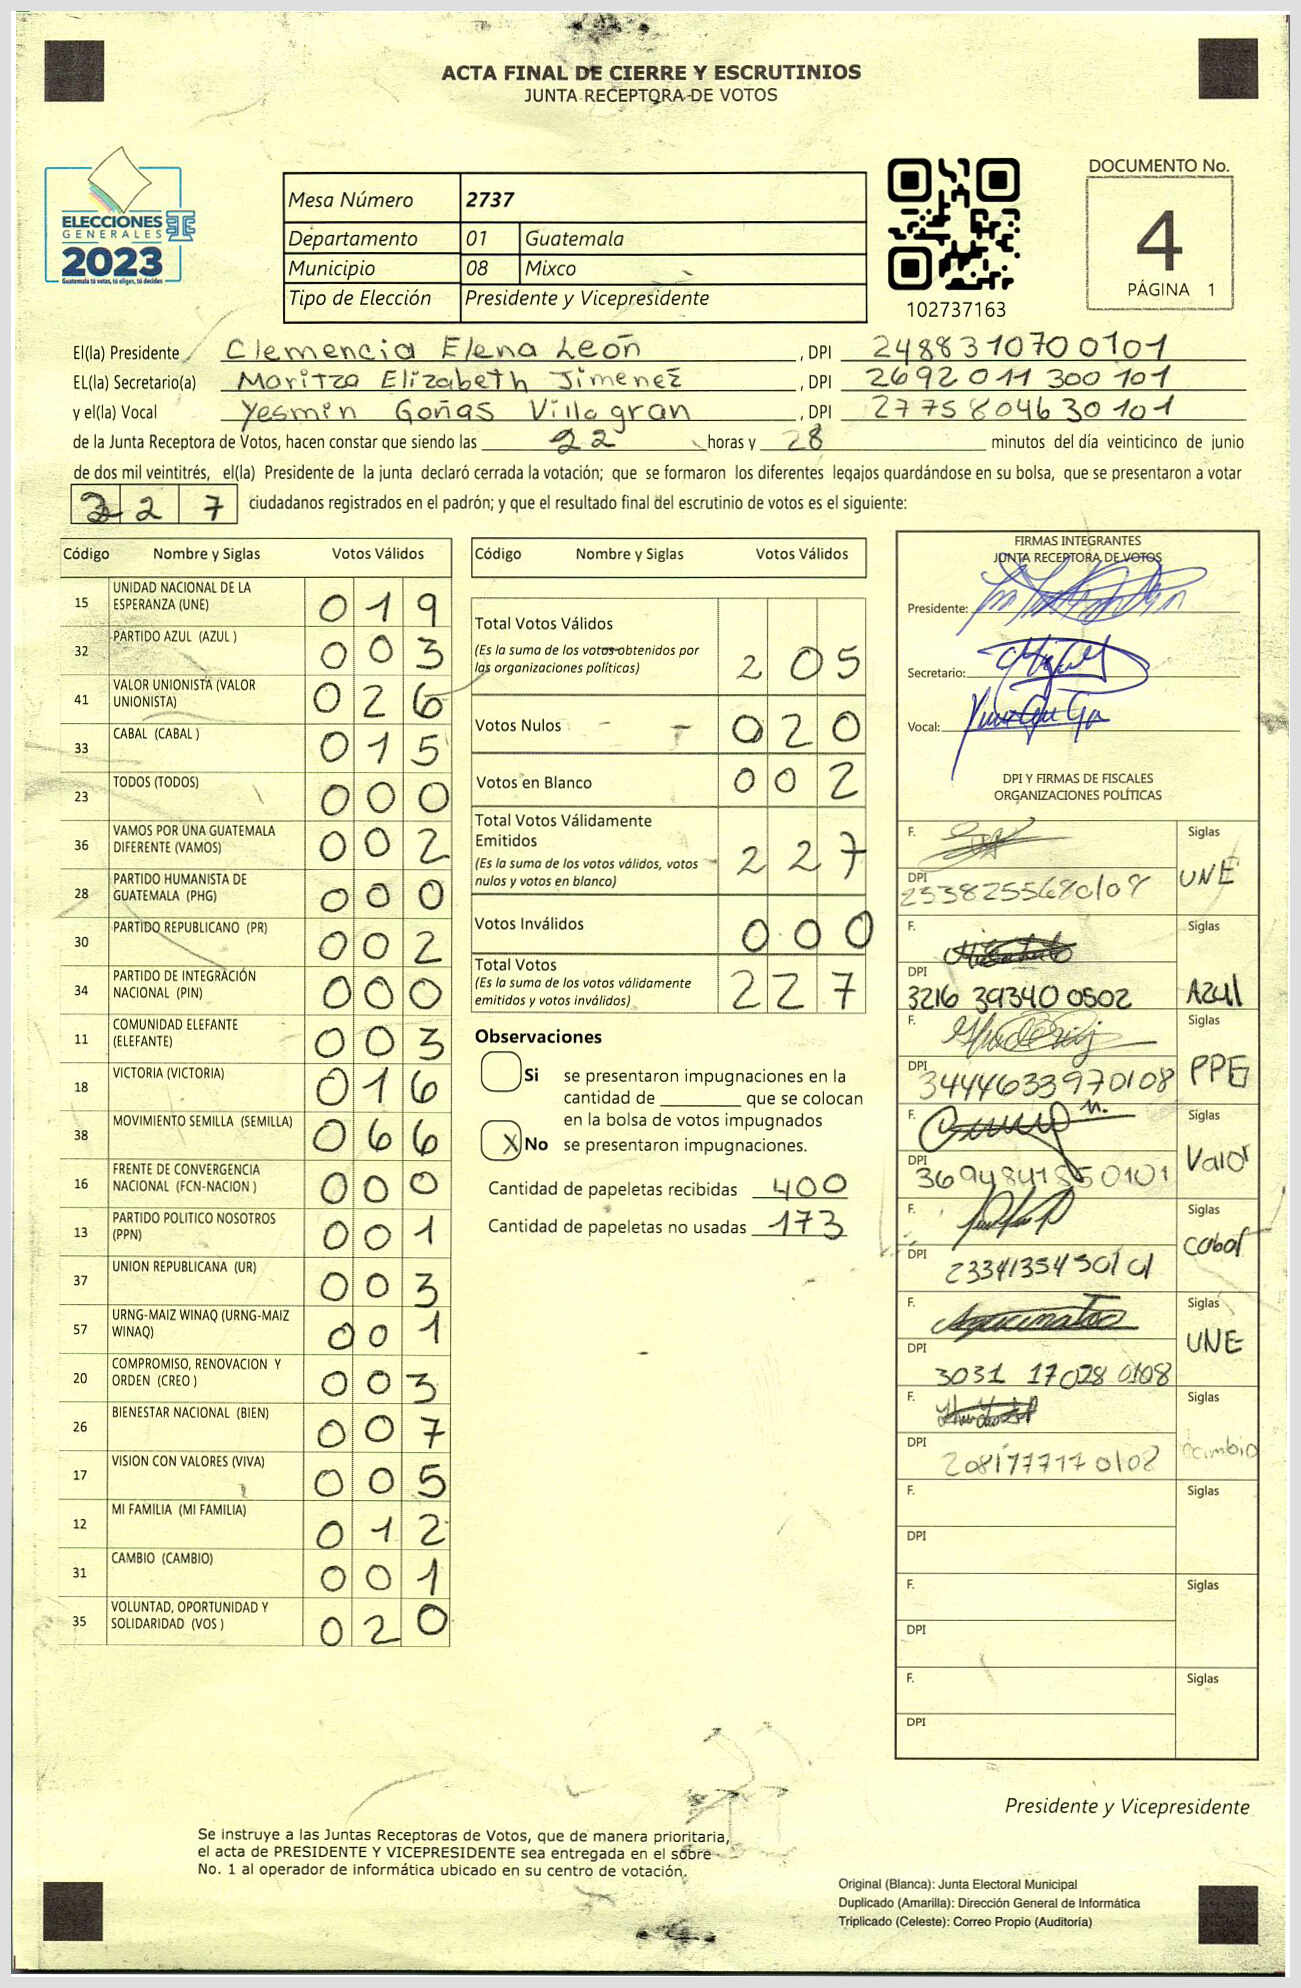 ACTA FINAL DE CIERRE Y ESCRUTINIOS
JUNTA RECEPTORA DE VOTOS
ELECCIONES
GENERALES
2023
Guatemala tú votas, tú eliges, tú decides
Mesa Número 2737
Departamento 01 Guatemala
Municipio 08 Mixco
Tipo de Elección Presidente y Vicepresidente
102737163
DOCUMENTO No.
4
PÁGINA 1
El(la) Presidente Clemencia Elena León , DPI 2488310700101
EL(la) Secretario(a) Maritza Elizabeth Jimenez , DPI 2692011300101
y el(la) Vocal Yesmin Goñas Villagran , DPI 2775804630101
de la Junta Receptora de Votos, hacen constar que siendo las 22 horas y 28 minutos del día veinticinco de junio
de dos mil veintitrés, el(la) Presidente de la junta declaró cerrada la votación; que se formaron los diferentes legajos quardándose en su bolsa, que se presentaron a votar
2 2 7 ciudadanos registrados en el padrón; y que el resultado final del escrutinio de votos es el siguiente:
Código Nombre y Siglas Votos Válidos
15 UNIDAD NACIONAL DE LA ESPERANZA (UNE) 0 1 9
32 PARTIDO AZUL (AZUL ) 0 0 3
41 VALOR UNIONISTA (VALOR UNIONISTA) 0 2 6
33 CABAL (CABAL ) 0 1 5
23 TODOS (TODOS) 0 0 0
36 VAMOS POR UNA GUATEMALA DIFERENTE (VAMOS) 0 0 2
28 PARTIDO HUMANISTA DE GUATEMALA (PHG) 0 0 0
30 PARTIDO REPUBLICANO (PR) 0 0 2
34 PARTIDO DE INTEGRACIÓN NACIONAL (PIN) 0 0 0
11 COMUNIDAD ELEFANTE (ELEFANTE) 0 0 3
18 VICTORIA (VICTORIA) 0 1 6
38 MOVIMIENTO SEMILLA (SEMILLA) 0 6 6
16 FRENTE DE CONVERGENCIA NACIONAL (FCN-NACION ) 0 0 0
13 PARTIDO POLITICO NOSOTROS (PPN) 0 0 1
37 UNION REPUBLICANA (UR) 0 0 3
57 URNG-MAIZ WINAQ (URNG-MAIZ WINAQ) 0 0 1
20 COMPROMISO, RENOVACION Y ORDEN (CREO ) 0 0 3
26 BIENESTAR NACIONAL (BIEN) 0 0 7
17 VISION CON VALORES (VIVA) 0 0 5
12 MI FAMILIA (MI FAMILIA) 0 1 2
31 CAMBIO (CAMBIO) 0 0 1
35 VOLUNTAD, OPORTUNIDAD Y SOLIDARIDAD (VOS ) 0 2 0
Código Nombre y Siglas Votos Válidos
Total Votos Válidos
(Es la suma de los votos obtenidos por
las organizaciones políticas) 2 0 5
Votos Nulos 0 2 0
Votos en Blanco 0 0 2
Total Votos Válidamente
Emitidos
(Es la suma de los votos válidos, votos
nulos y votos en blanco) 2 2 7
Votos Inválidos 0 0 0
Total Votos
(Es la suma de los votos válidamente
emitidos y votos inválidos) 2 2 7
Observaciones
Si se presentaron impugnaciones en la
cantidad de ________ que se colocan
en la bolsa de votos impugnados
X No se presentaron impugnaciones.
Cantidad de papeletas recibidas 400
Cantidad de papeletas no usadas 173
FIRMAS INTEGRANTES
JUNTA RECEPTORA DE VOTOS
Presidente:
Secretario:
Vocal:
DPI Y FIRMAS DE FISCALES
ORGANIZACIONES POLÍTICAS
F. Siglas
DPI 2538255680108 UNE
F. Siglas
DPI 3216 393400502 Azul
F. Siglas
DPI 3444633970108 PPE
F. Siglas
DPI 3694841850101 Valor
F. Siglas
DPI 2334135450101 cabal
F. Siglas
DPI 3031 17028 0108 UNE
F. Siglas
DPI
F. Siglas
DPI
F. Siglas
DPI
F. Siglas
DPI
Presidente y Vicepresidente
Se instruye a las Juntas Receptoras de Votos, que de manera prioritaria,
el acta de PRESIDENTE Y VICEPRESIDENTE sea entregada en el sobre
No. 1 al operador de informática ubicado en su centro de votación.
Original (Blanca): Junta Electoral Municipal
Duplicado (Amarilla): Dirección General de Informática
Triplicado (Celeste): Correo Propio (Auditoría)